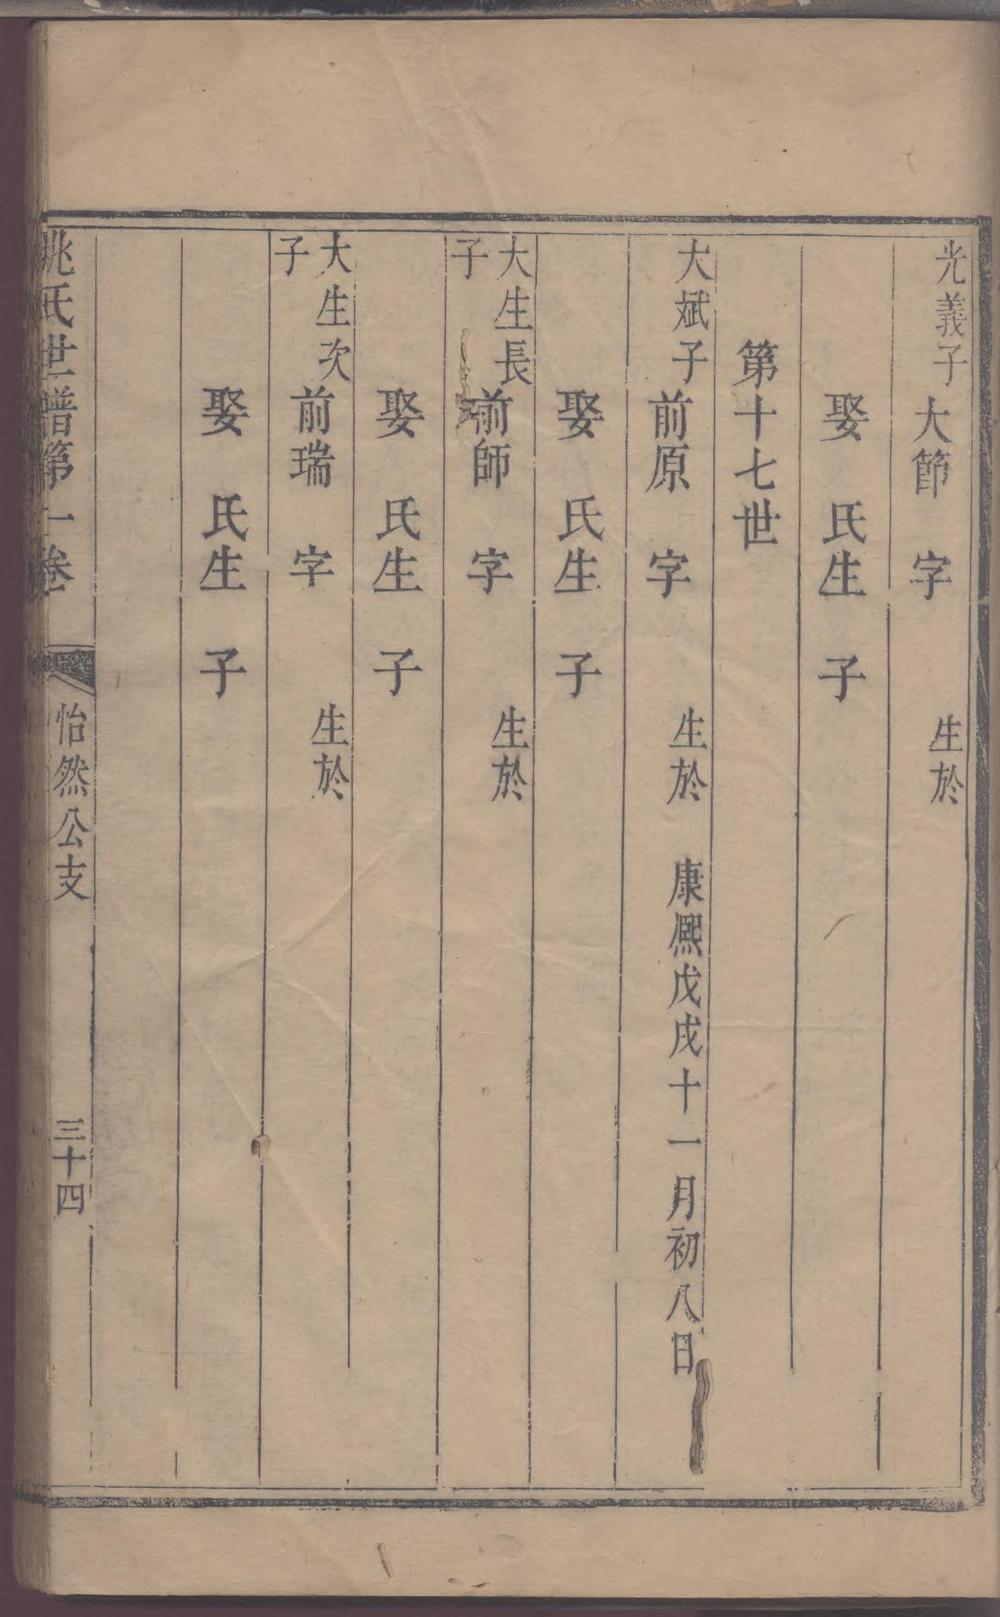 光義子 大節 字 生於
娶 氏生 子
第十七世
大斌子 前原 字 生於 康熙戊戌十一月初八日
娶 氏生 子
大生長子 前師 字 生於
娶 氏生 子
大生次子 前瑞 字 生於
娶 氏生 子
姚氏世譜第一卷 怡然公支 三十四